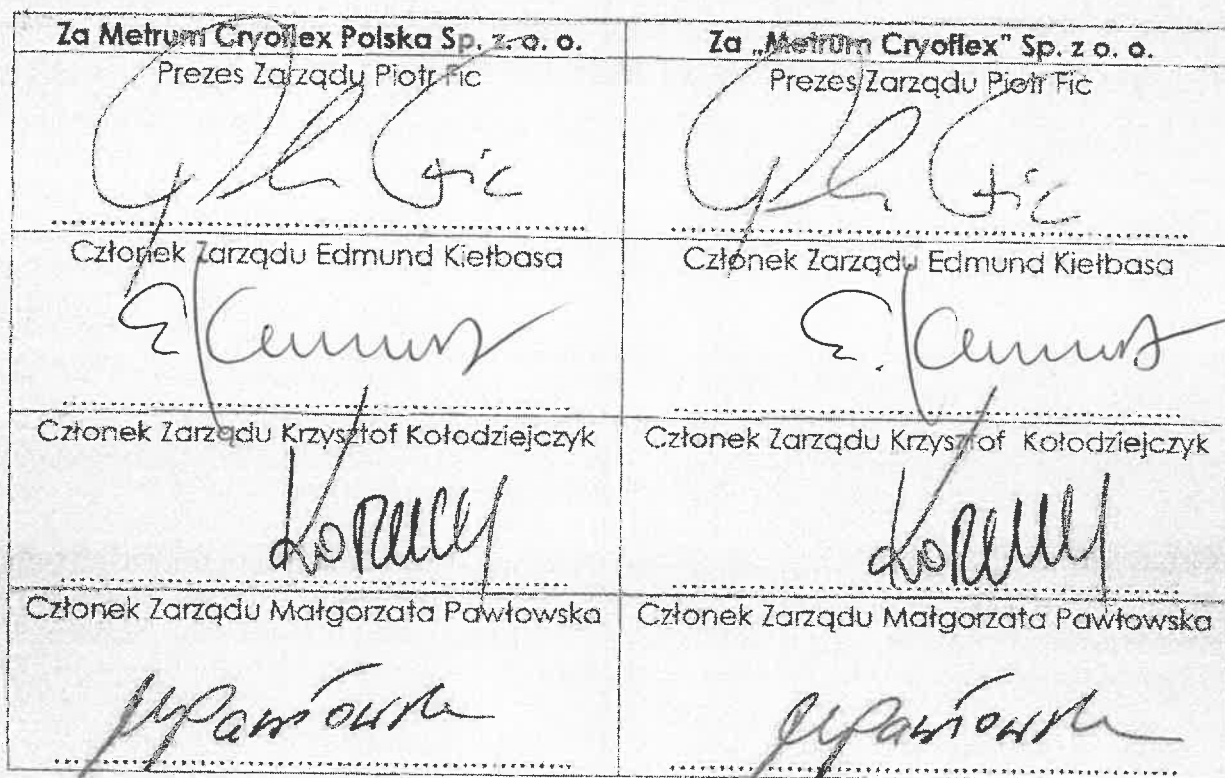 Za Metrum Cryoflex Polska Sp. z. o. o.
Za „Metrum Cryoflex" Sp. z o. o.
Prezes Zarządu Piotr Fic
Prezes Zarządu Piotr Fic
Fic
Fic
Członek Zarządu Edmund Kiełbasa
Członek Zarządu Edmund Kiełbasa
Członek Zarządu Krzysztof Kołodziejczyk
Członek Zarządu Krzysztof Kołodziejczyk
Członek Zarządu Małgorzata Pawłowska
Członek Zarządu Małgorzata Pawłowska
MPawłowska
MPawłowska